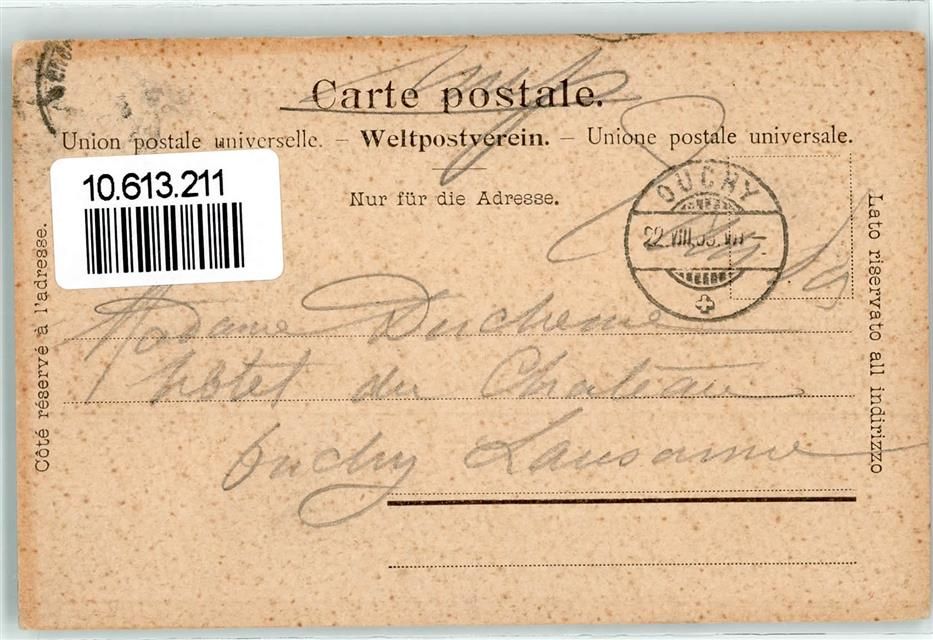 Carte postale.
Union postale universelle. – Weltpostverein. – Unione postale universale.
10.613.211
Nur für die Adresse.
OUCHY
22.VIII.03.VII–
Côté réservé à l'adresse.
Lato riservato all indirizzo
Madame Duchesne
hôtel du Chateau
Ouchy Lausanne